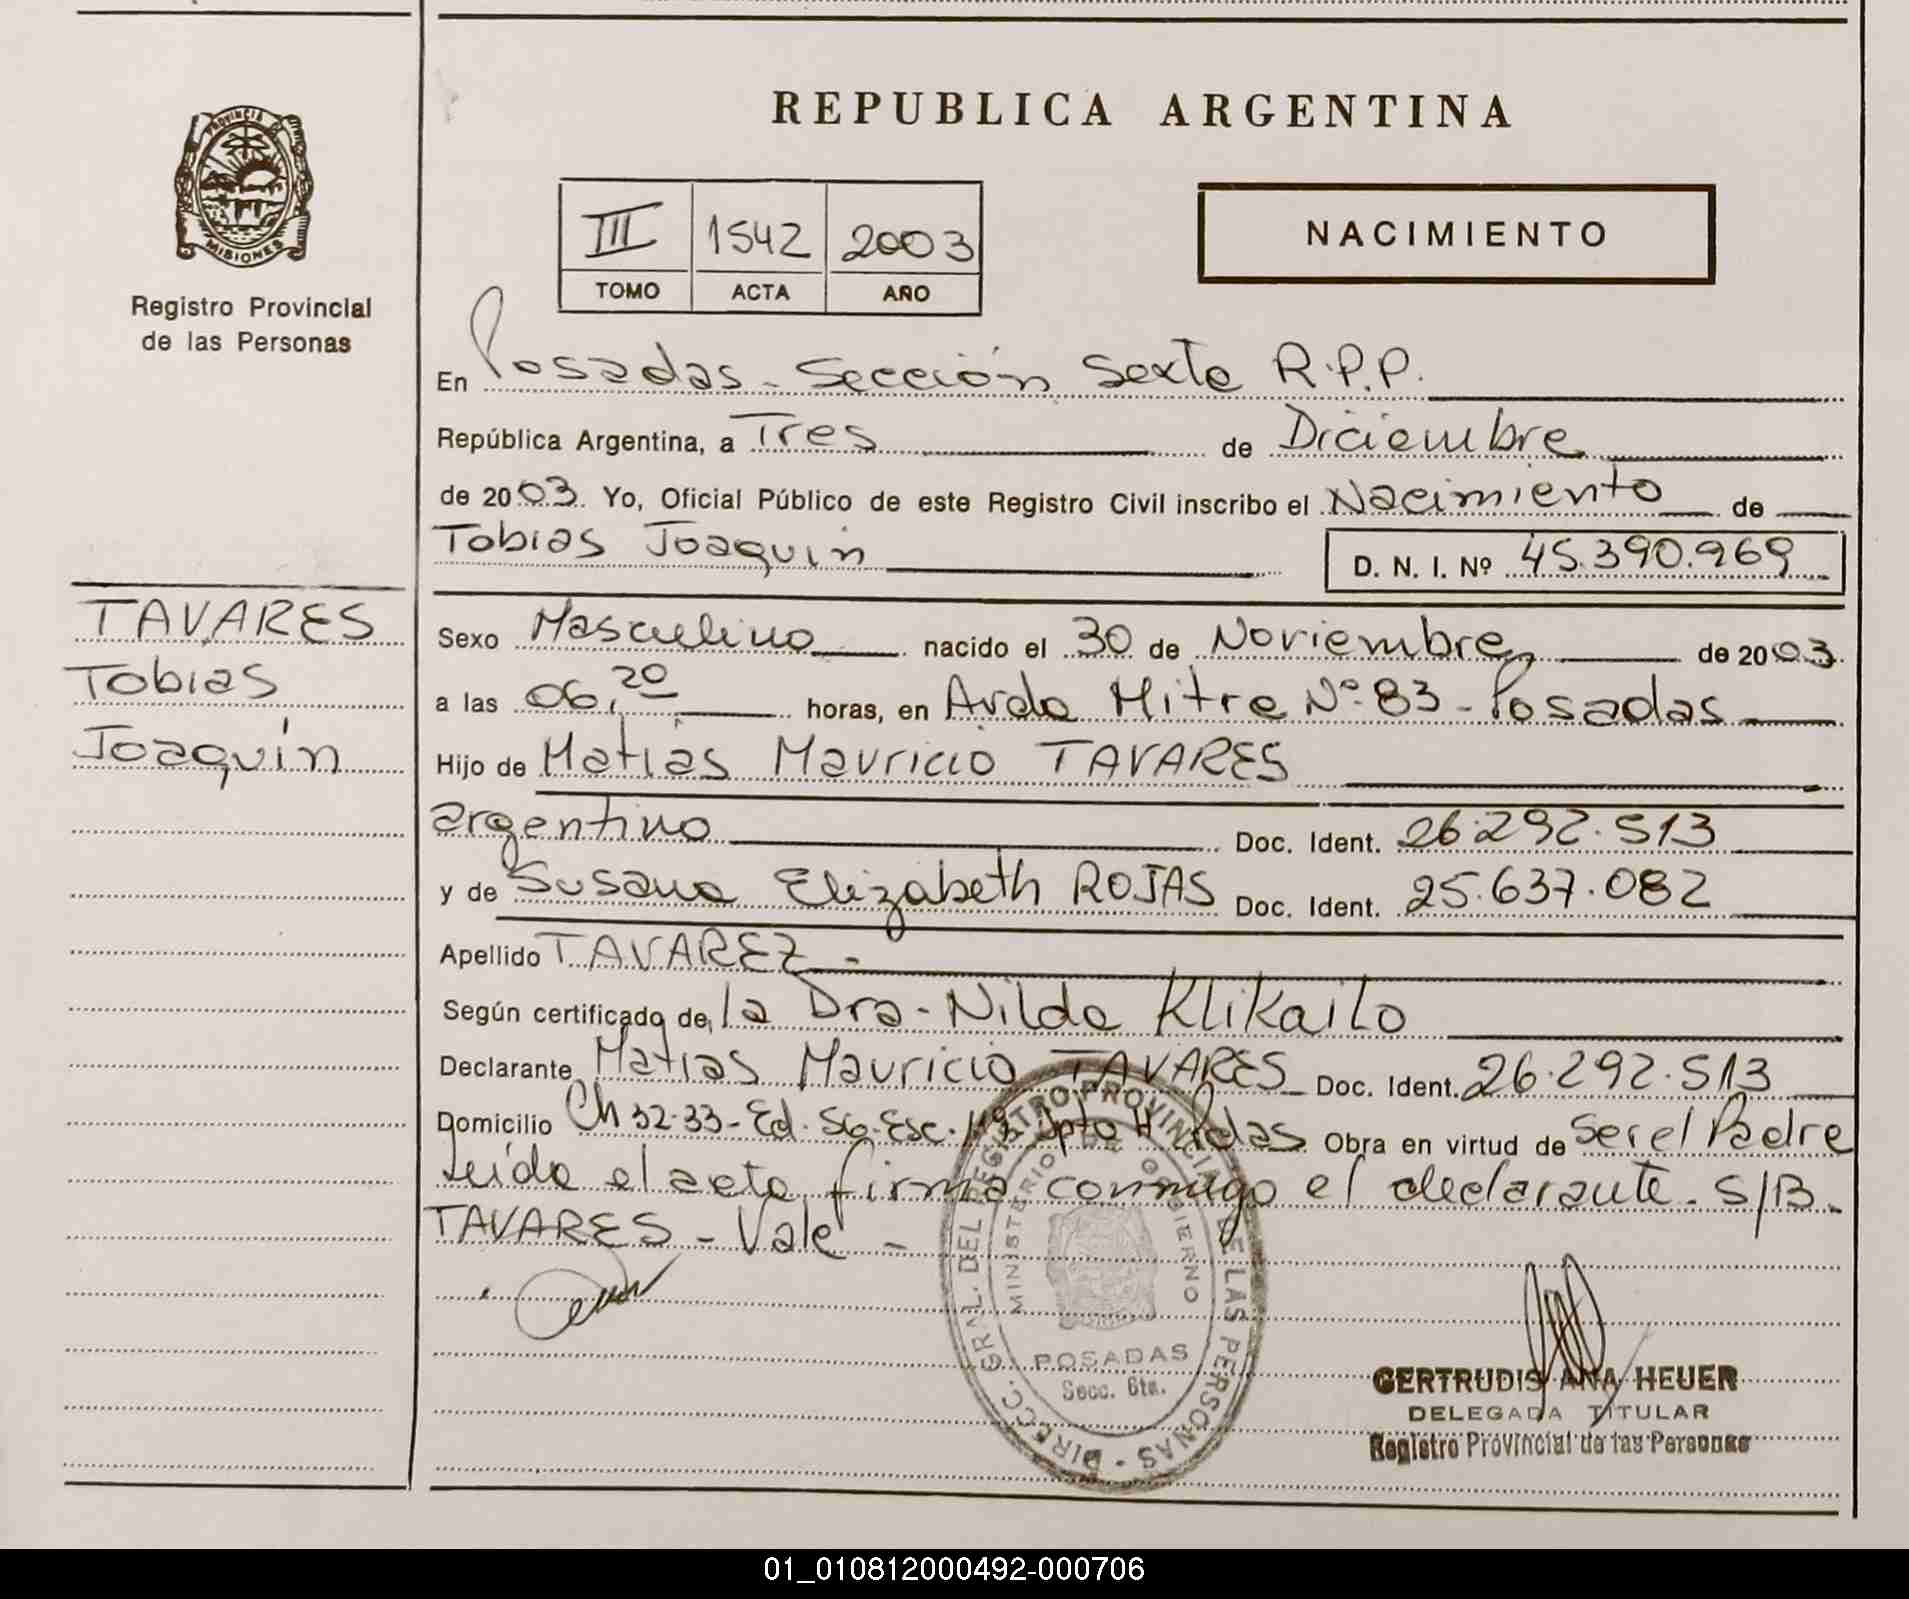 PROVINCIA
MISIONES
Registro Provincial
de las Personas
TAVARES
Tobias
Joaquín
REPUBLICA ARGENTINA
III 1542 2003
TOMO ACTA AÑO
NACIMIENTO
En Posadas - Sección Sexta R.P.P.
República Argentina, a Tres de Diciembre
de 2003. Yo, Oficial Público de este Registro Civil inscribo el Nacimiento de
Tobias Joaquin D. N. I. Nº 45.390.969
Sexo Masculino nacido el 30 de Noviembre de 2003.
a las 06,20 horas, en Avda Mitre Nº 83 - Posadas
Hijo de Matias Mauricio TAVARES
argentino Doc. Ident. 26.292.513
y de Susana Elizabeth ROJAS Doc. Ident. 25.637.082
Apellido TAVAREZ -
Según certificado de la Dra. Nilda Klikailo
Declarante Matias Mauricio TAVARES Doc. Ident. 26.292.513
Domicilio Ch 32-33 - Ed. 56 - Esc. Dpto H Pdas Obra en virtud de ser el Padre
Leida el acta, firma conmigo el declarante. S/B.
TAVARES - Vale -
DIRECC. GRAL. DEL REGISTRO PROVINCIAL DE LAS PERSONAS
MINISTERIO DE GOBIERNO
POSADAS
Secc. 6ta.
GERTRUDIS ANA HEUER
DELEGADA TITULAR
Registro Provincial de las Personas
01_010812000492-000706